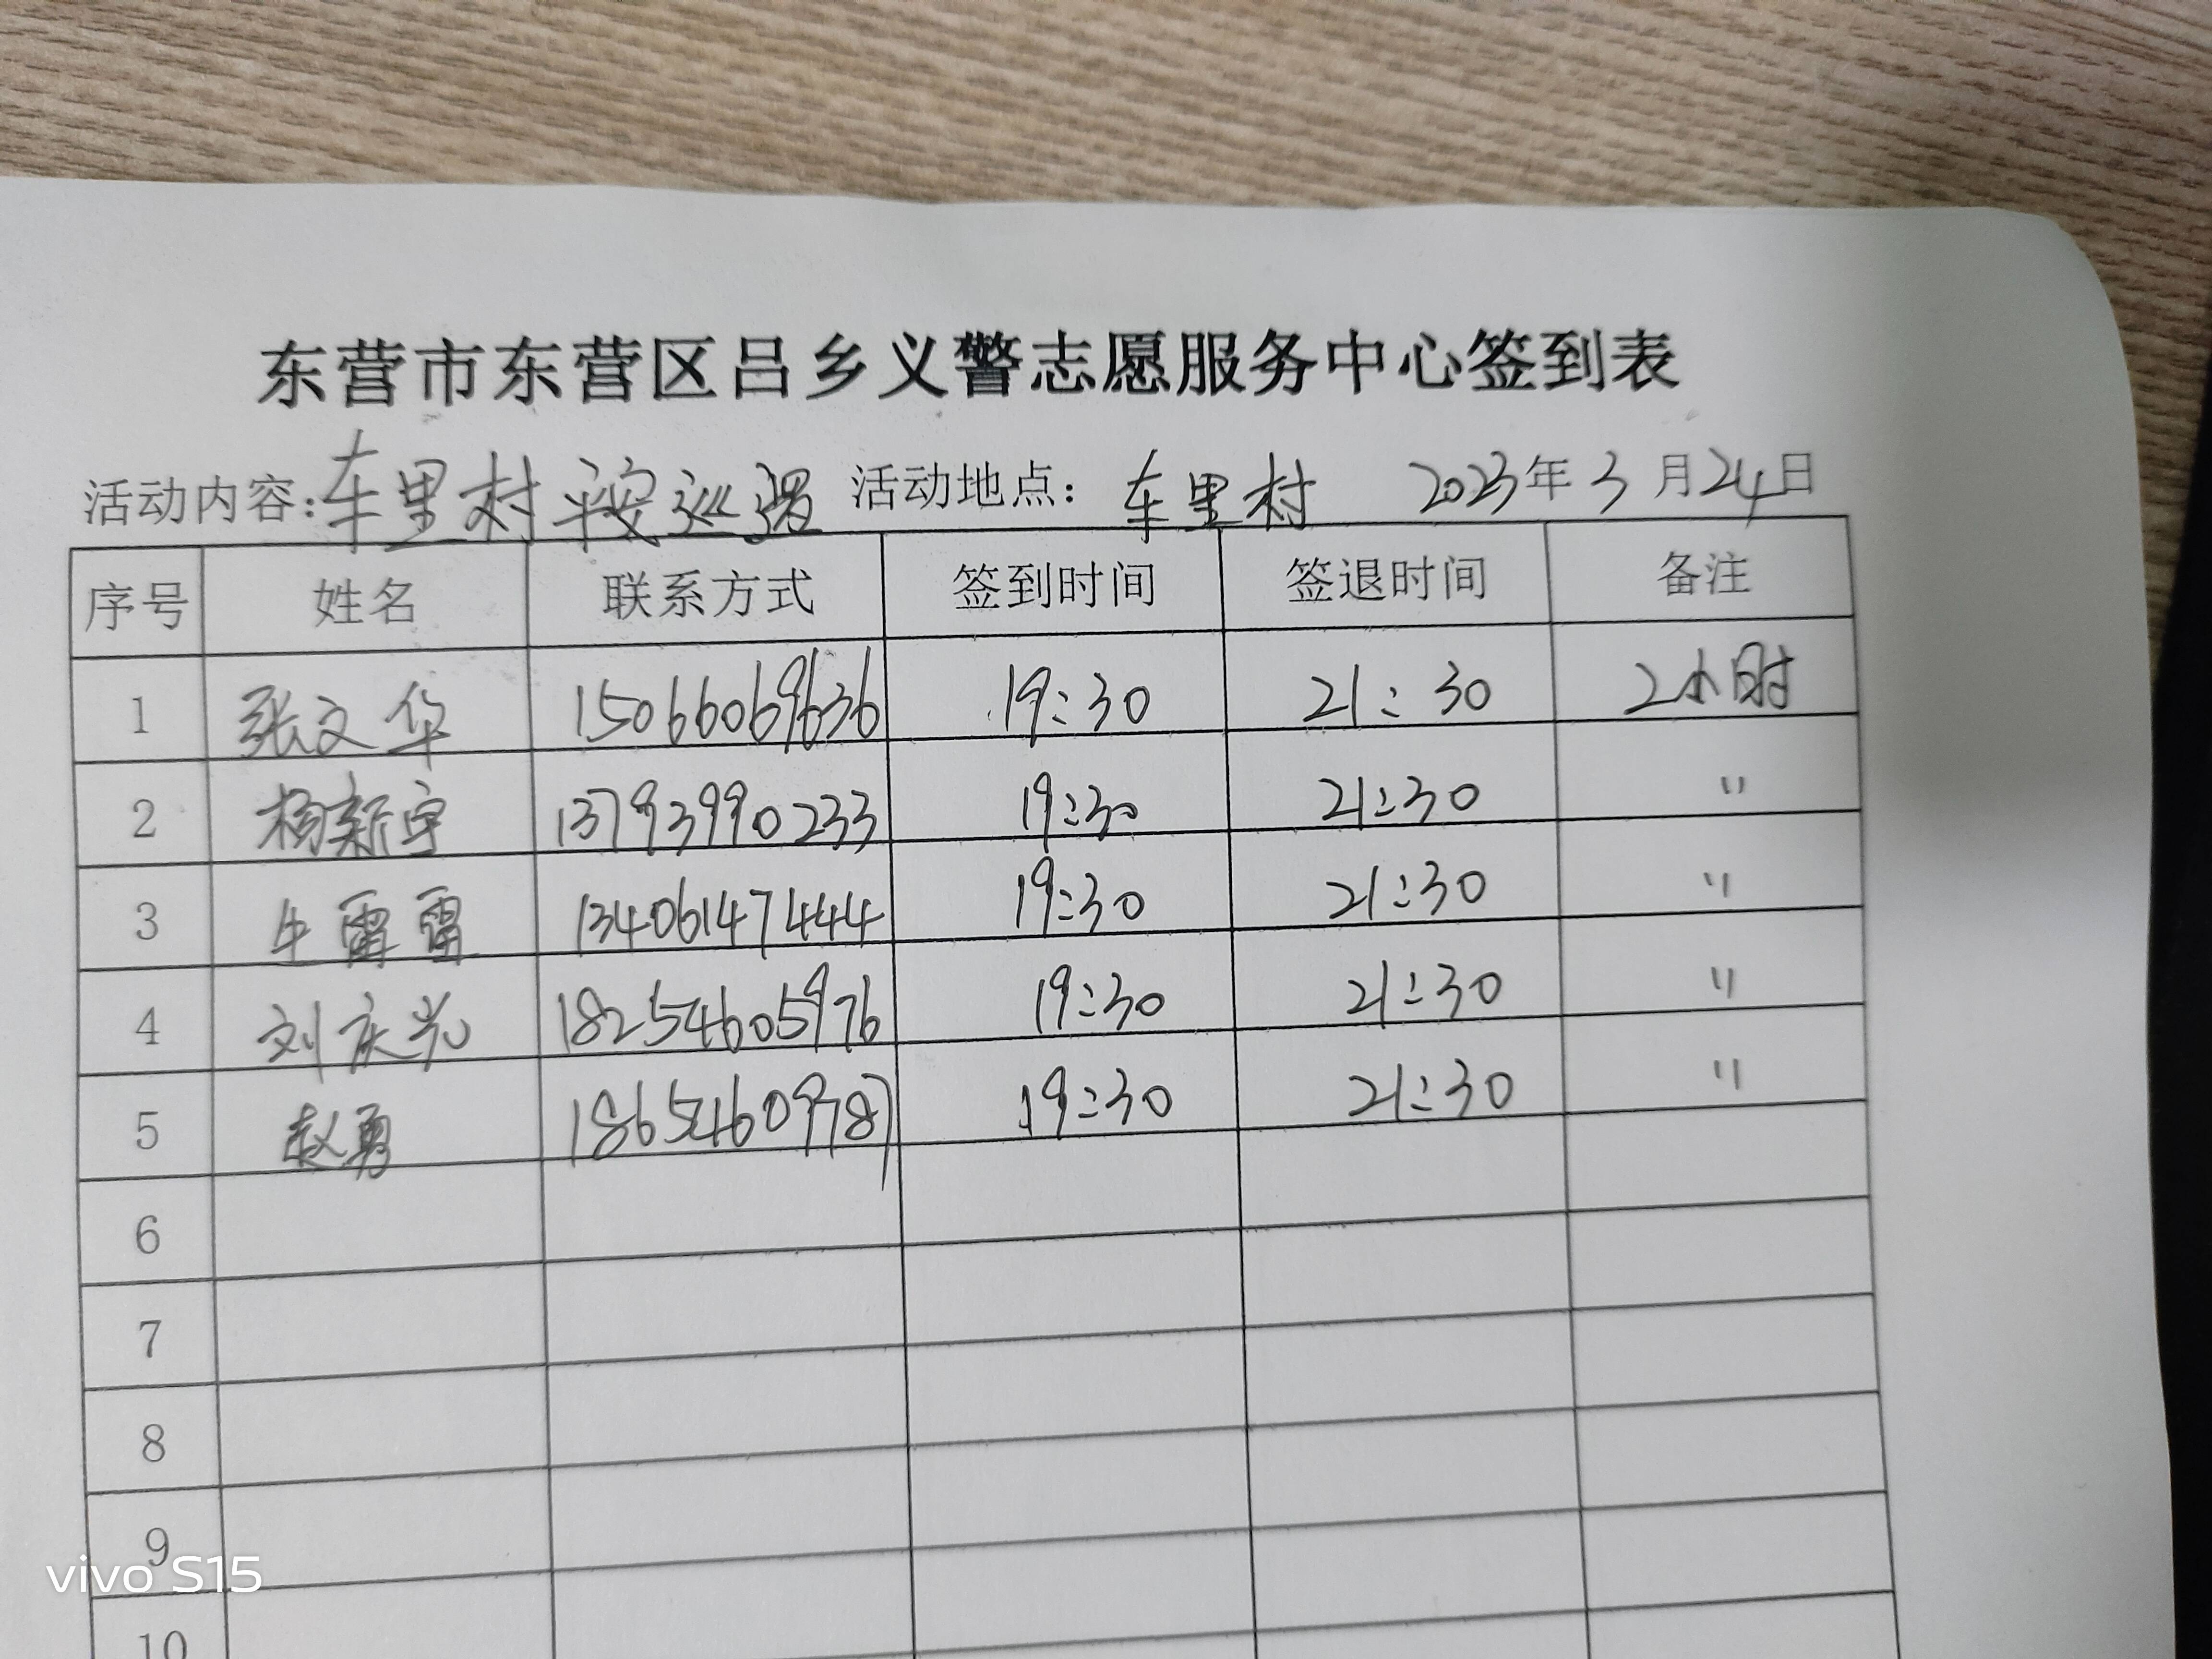 东营市东营区吕乡义警志愿服务中心签到表
活动内容:车里村平安巡逻 活动地点: 车里村 2023年3月24日
序号 姓名 联系方式 签到时间 签退时间 备注
1 张文华 15066069636 19:30 21:30 2小时
2 杨新宇 13793990233 19:30 21:30 〃
3 牛雷雷 13406147444 19:30 21:30 〃
4 刘庆光 18254605976 19:30 21:30 〃
5 赵勇 18654609787 19:30 21:30 〃
6
7
8
9
10
vivo S15